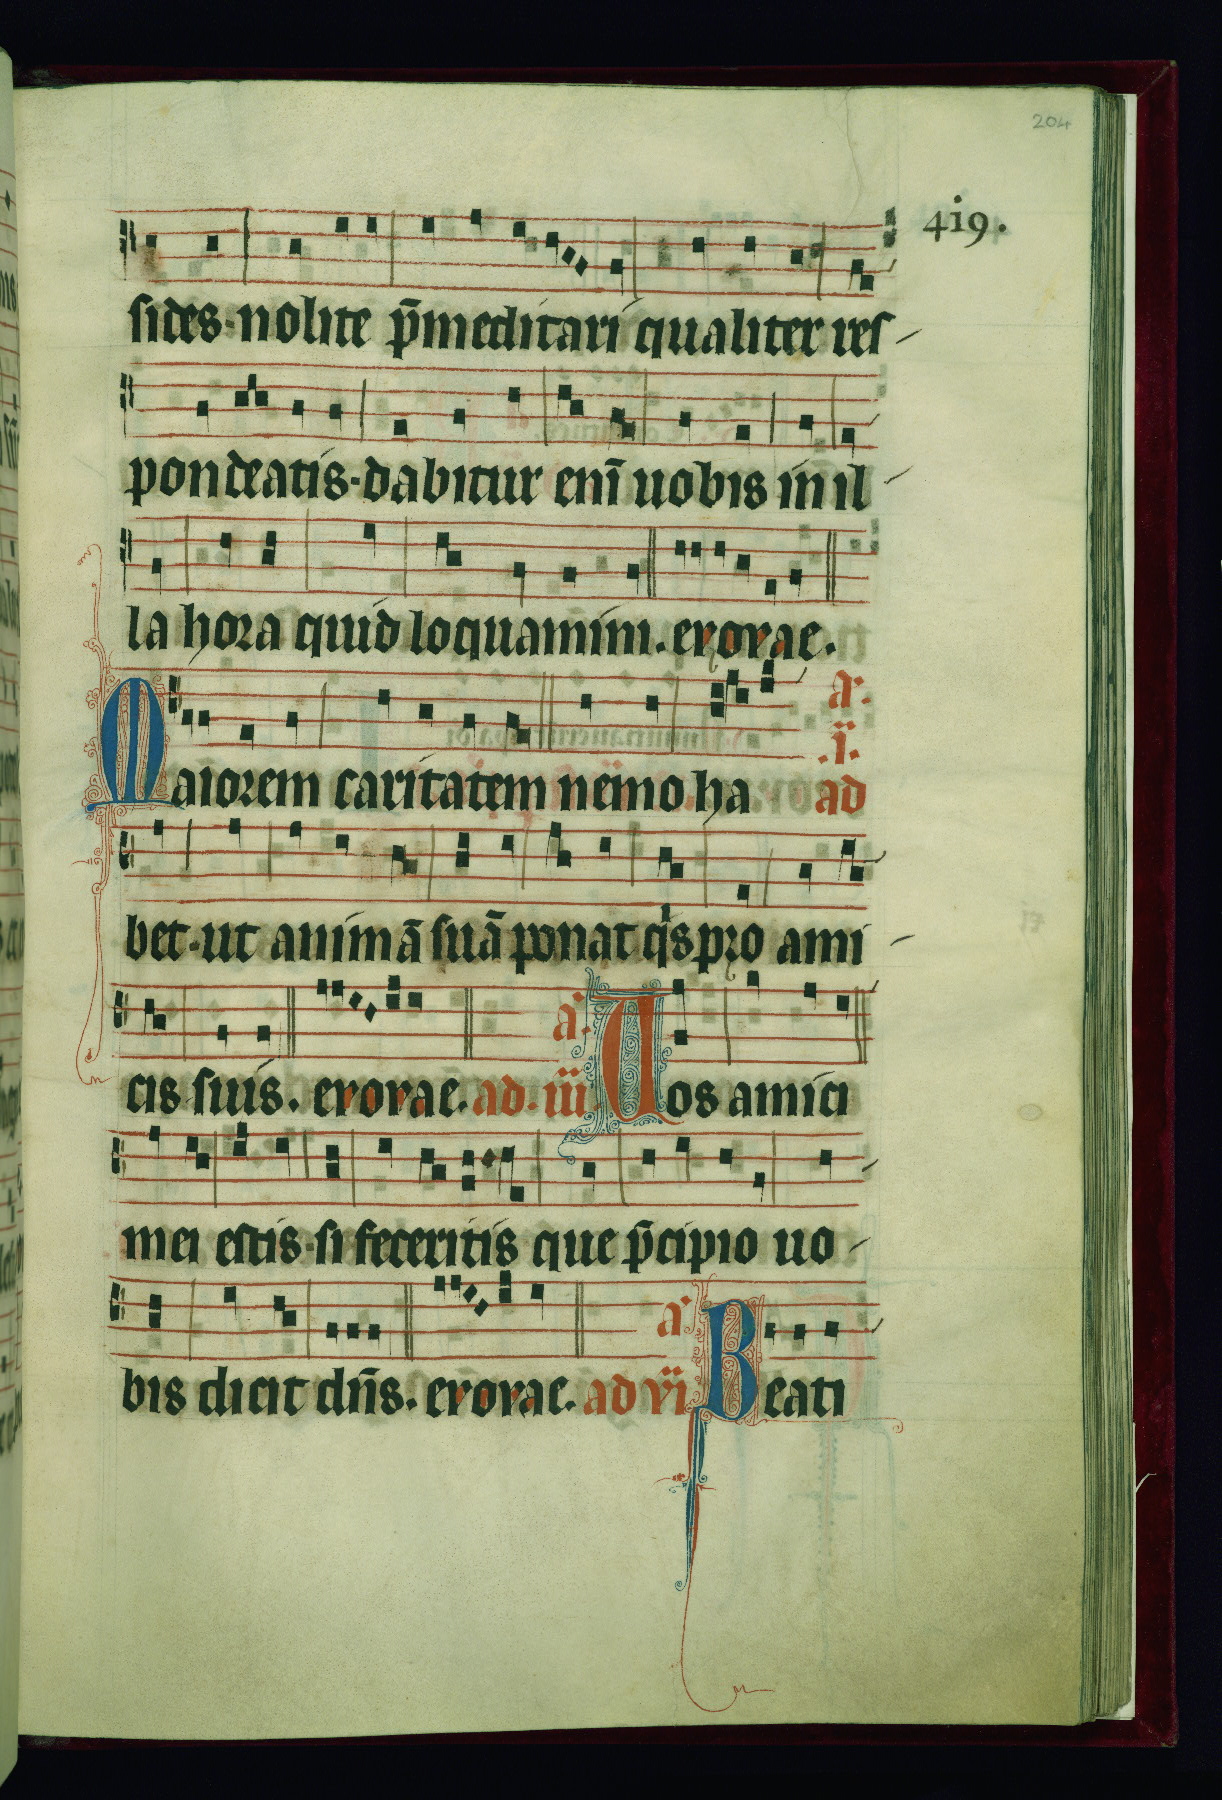 204
419.
sides. nolite p̄meditari qualiter res
pondeatis. dabitur enī uobis in il
la hora quid loquamini. evovae.
Maiorem caritatem nemo ha a. .i. ad
bet. ut animā suā ponat qͥs pro ami
cis suis. evovae. ad. iii a. Uos amici
mei estis. si feceritis que p̄cipio uo
bis dicit dn̄s. evovae. ad vi a. Beati